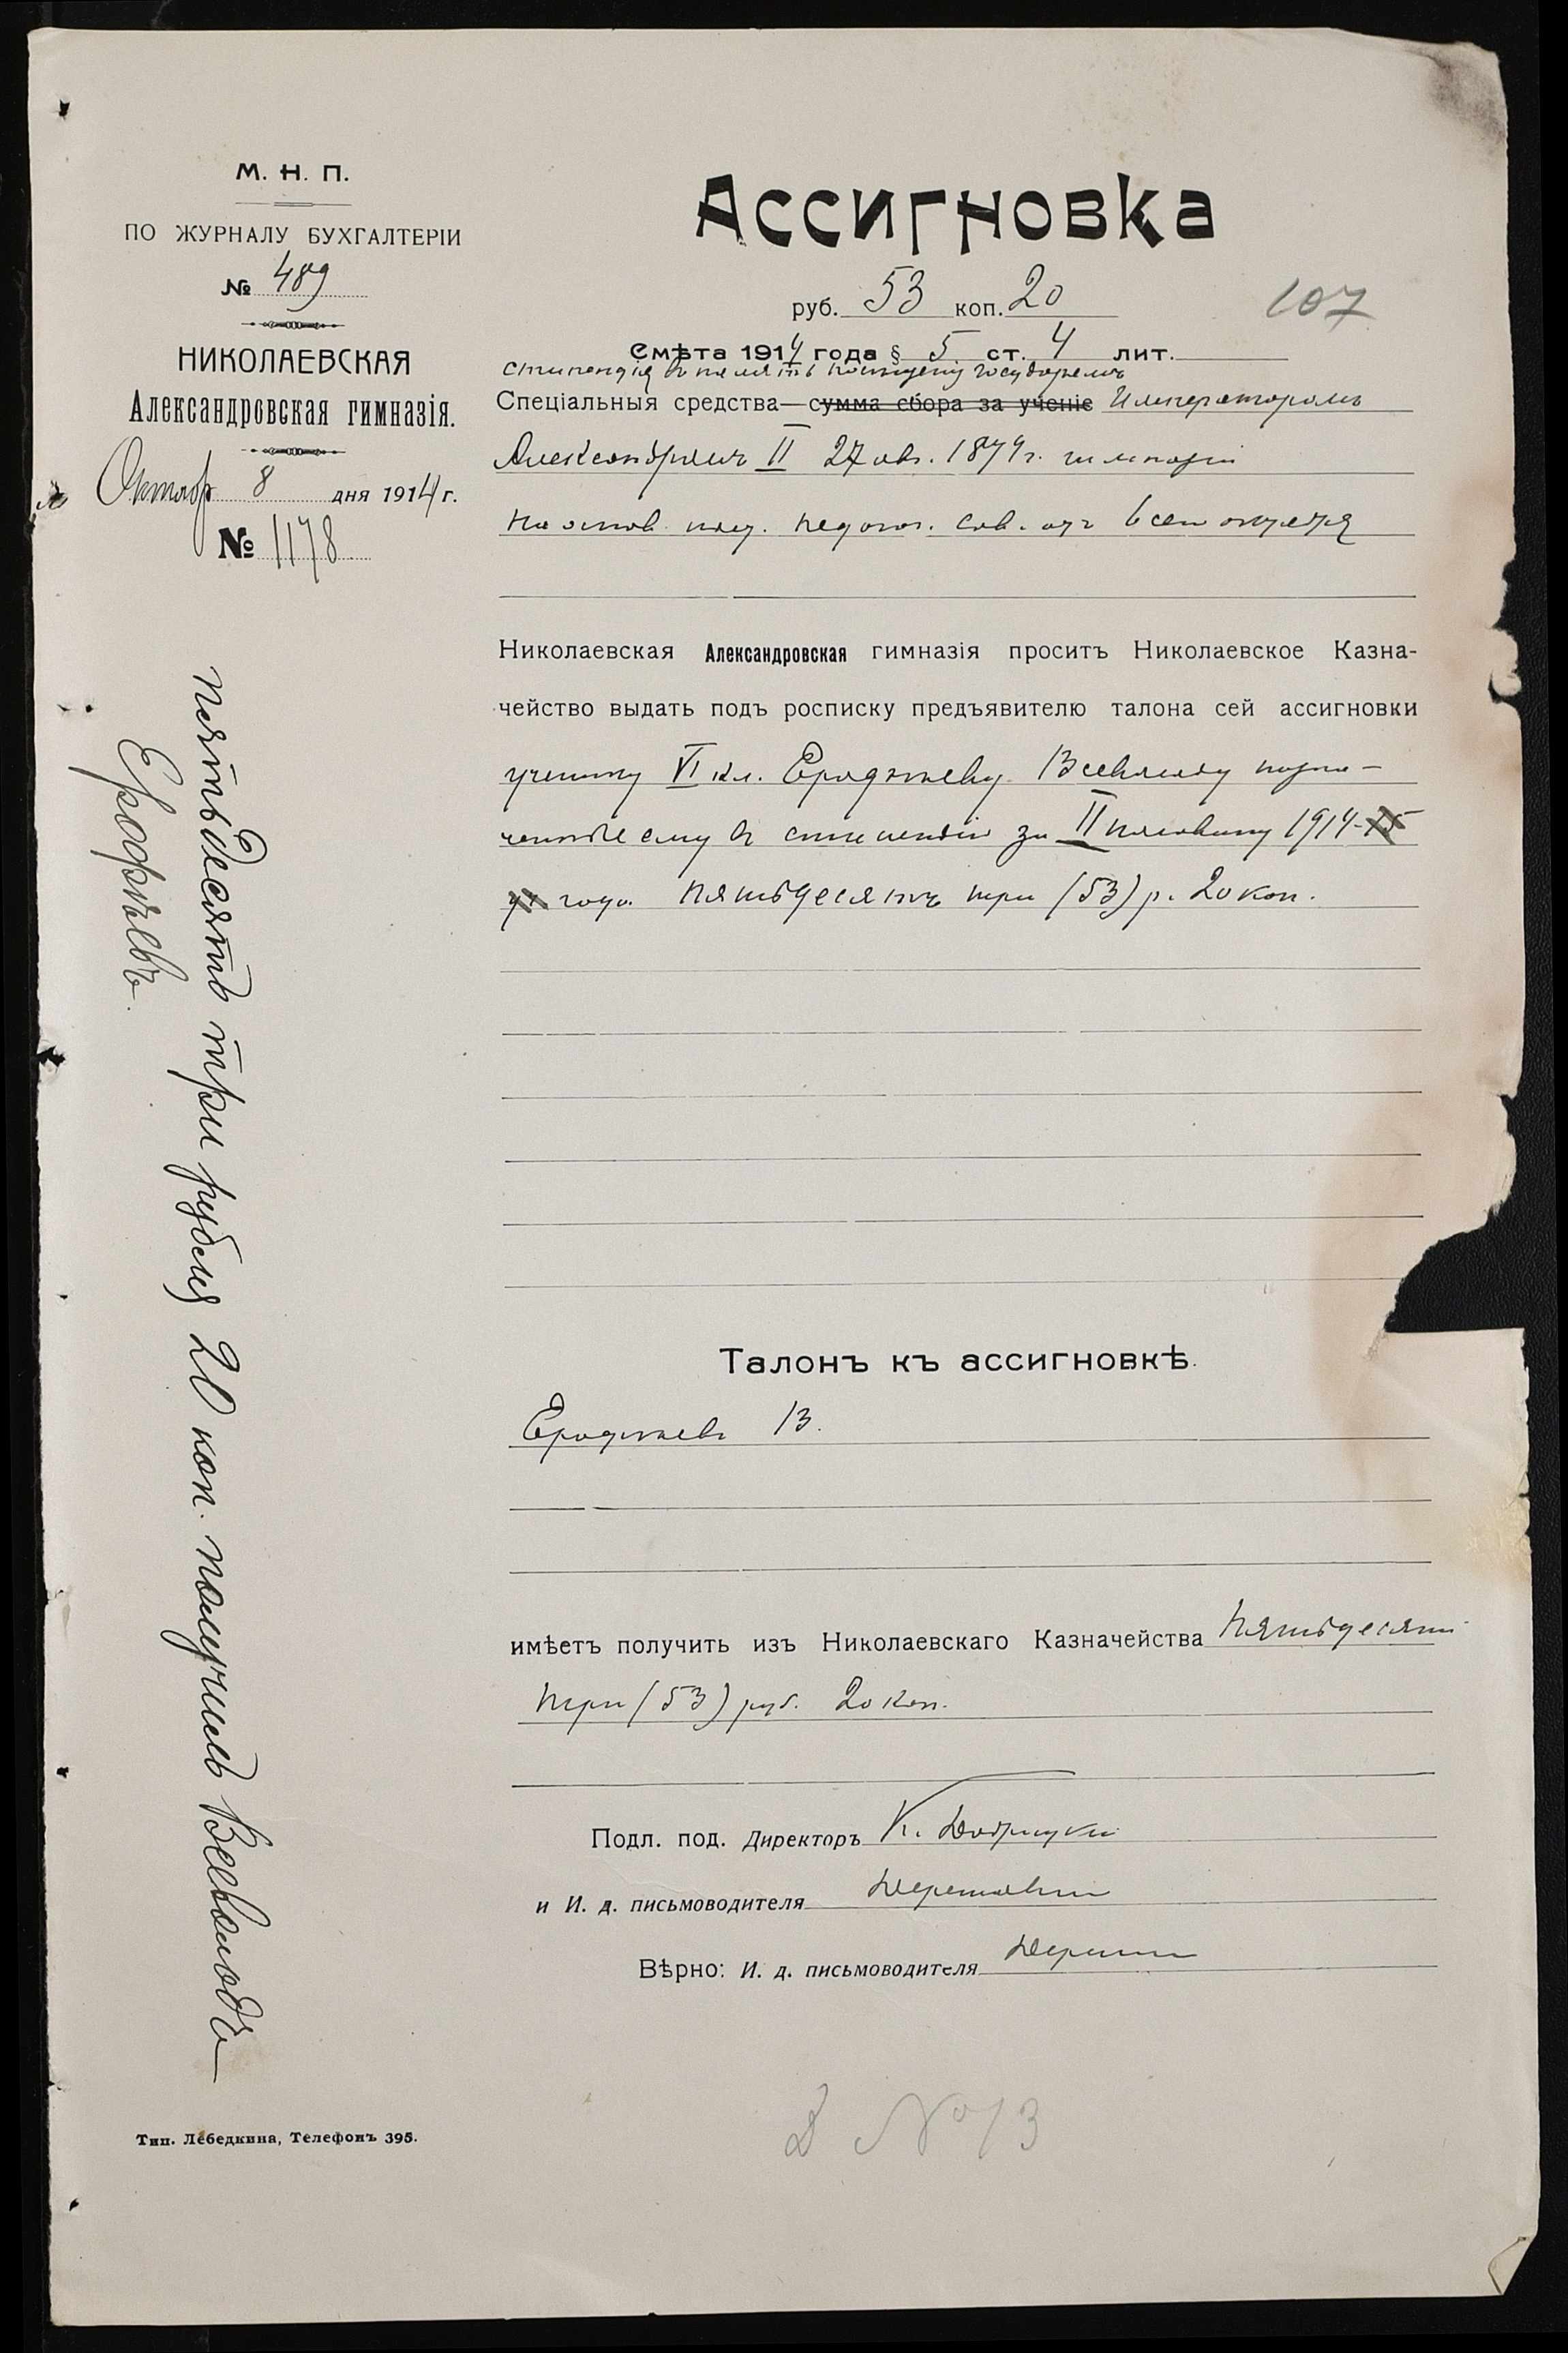 М. Н. П.
ПО ЖУРНАЛУ БУХГАЛТЕРІИ
№ 489
НИКОЛАЕВСКАЯ
Александровская гимназія.
Октябр 8 дня 1914 г.
№ 1178
Ассигновка
руб. 53 коп. 20
107
Смѣта 1914 года § 5 ст. 4 лит.
стипендія въ память посѣщенія Государемъ
Спеціальныя средства—сумма сбора за ученіе Императоромъ
Александромъ II 27 авг. 1879 г. гимназіи
На основ. пост. педагог. сов. отъ 6 сего октября
Николаевская Александровская гимназія проситъ Николаевское Казна-
чейство выдать подъ росписку предъявителю талона сей ассигновки
ученику VI кл. Ерофѣеву Всеволоду назна-
ченные ему въ стипендію за II половину 1914-15
уч. года пятьдесятъ три (53) р. 20 коп.
Пятьдесятъ три рубля 20 коп. получилъ Всеволодъ
Ерофѣевъ.
Талонъ къ ассигновкѣ.
Ерофѣевъ В.
имѣетъ получить изъ Николаевскаго Казначейства Пятьдесятъ
три (53) руб. 20 коп.
Подл. под. Директоръ К.
и И. д. письмоводителя
Вѣрно: И. д. письмоводителя
Тип. Лебедкина, Телефонъ 395.
№ 13